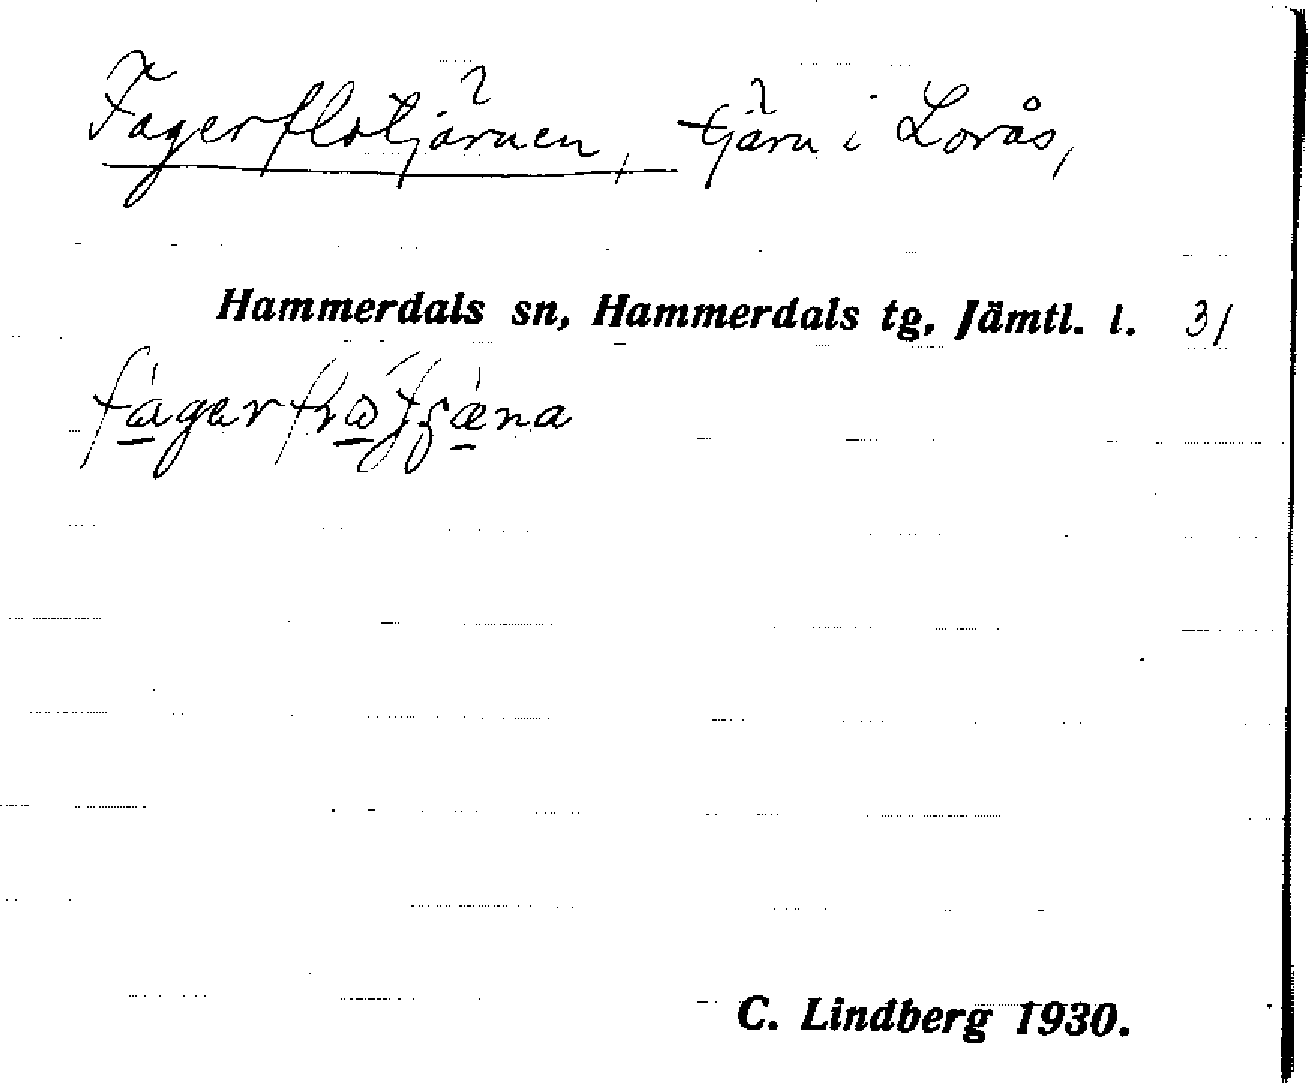 Fagerflotjärnen, tjärn i Lorås,
Hammerdals sn, Hammerdals tg, Jämtl. l. 31
C. Lindberg 1930.